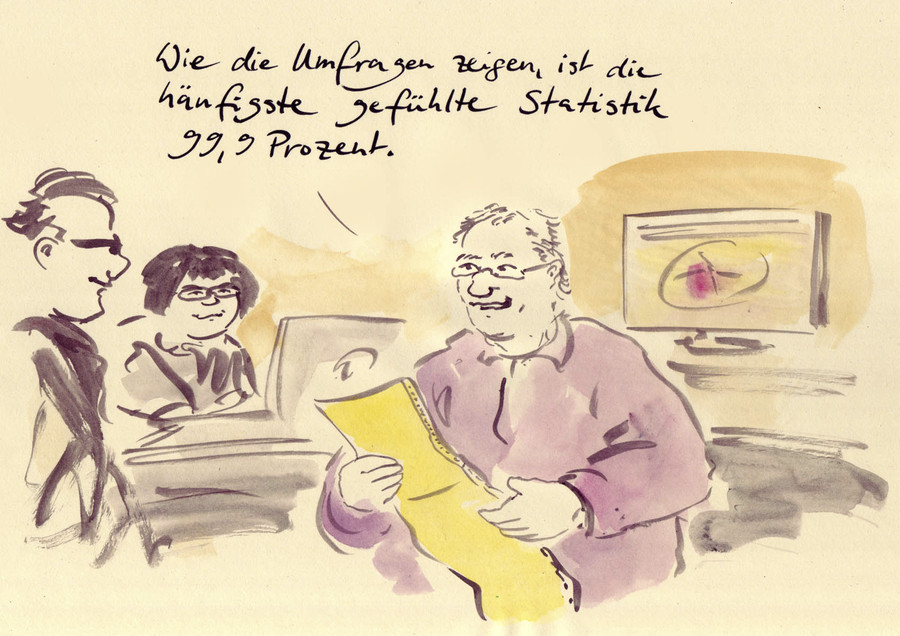 Wie die Umfragen zeigen, ist die
häufigste gefühlte Statistik
99,9 Prozent.